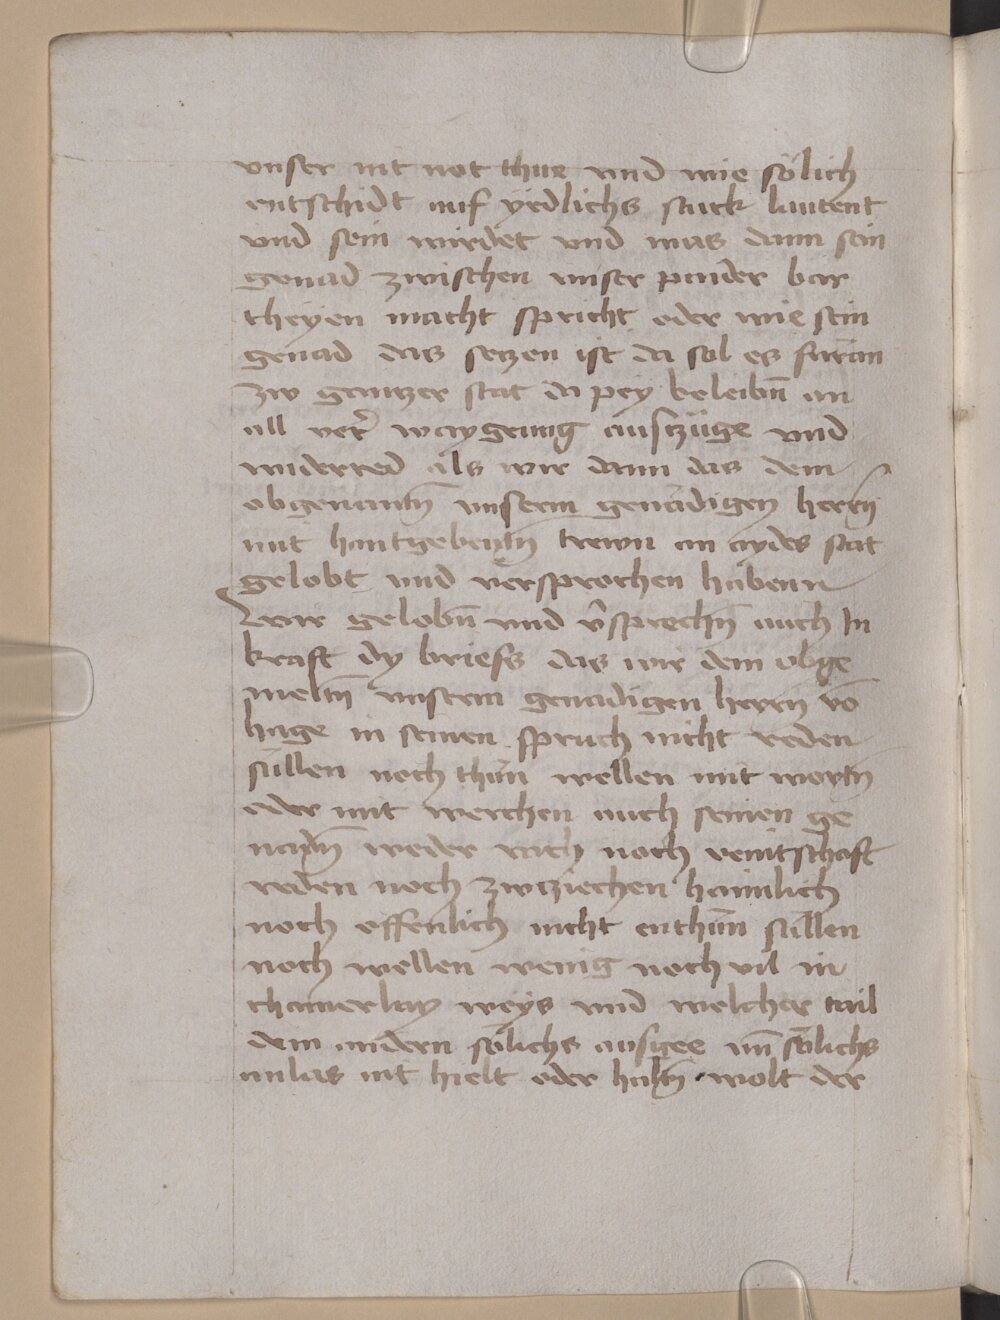 vnser nit not thue vnd wie sölich
entschidt auf yedlichs stuck lautent
vnd sein wirdet vnd was dann sein
genad zwischen vnser paider bar
theyen macht spricht oder wie sein
genad das setzen ist da sol es füran
zw gantzer stat da pey beleibn̄ an
all ver̃ waygrung auszüge vnd
widerred als wir dann das dem
obgenantn̄ vnserm genädigen herrn̄
mit hantgebentn̄ trewn an aydes stat
gelobt vnd versprochen habenn
Wir gelobn̄ vnd v̂sprechn̄ auch In
kraft dy briefs das wir dem obge
meltn̄ vnserm genadigen herrn vō
hage in seinen spruch nicht reden
süllen noch thün wellen mit wortn̄
oder mit werchen auch seinen ge
nadn̄ weder rach noch veintschaft
reden noch zwziechen haimlich
noch offenlich nicht enthün süllen
noch wellen wenig noch vil in
chainerlay weys vnd welcher tail
dem andern sölichs ausgee vn̄ sölichs
anlas nit hielt oder haltn̄ wolt der